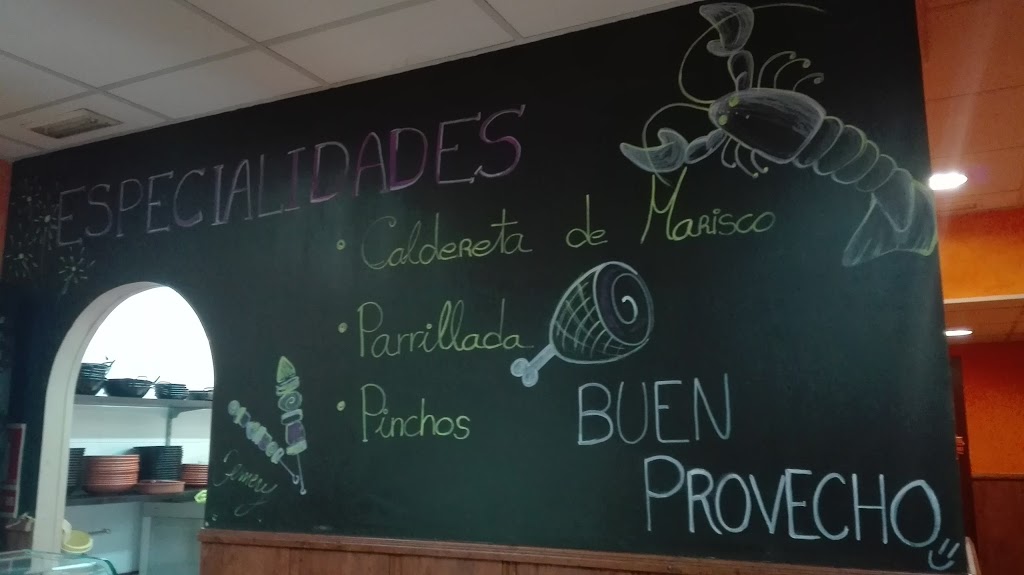 ESPECIALIDADES
• Caldereta de Marisco
• Parrillada
• Pinchos
BUEN
PROVECHO